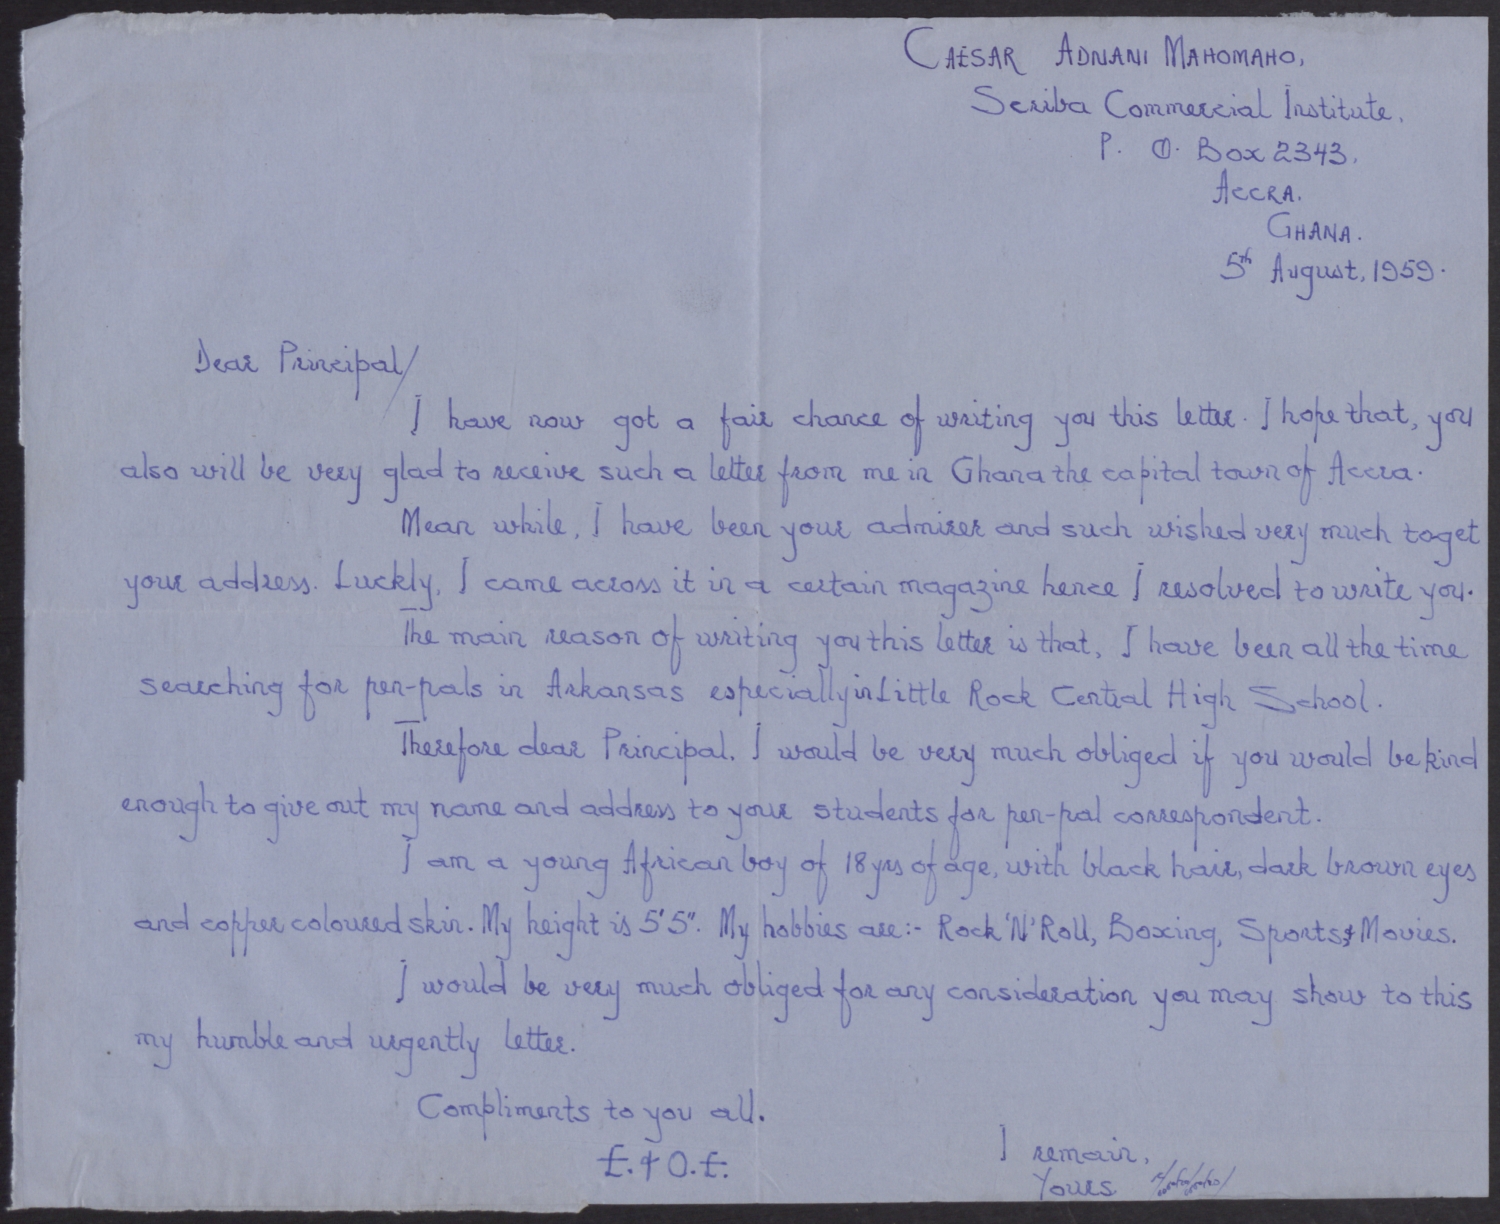 CAESAR ADNANI MAHOMAHO,
Scriba Commercial Institute,
P. O. Box 2343,
ACCRA.
GHANA.
5th August, 1959.
Dear Principal/
I have now got a fair chance of writing you this letter. I hope that, you
also will be very glad to receive such a letter from me in Ghana the capital town of Accra.
Mean while, I have been your admirer and such wished very much to get
your address. Luckly, I came across it in a certain magazine hence I resolved to write you.
The main reason of writing you this letter is that, I have been all the time
searching for pen-pals in Arkansas especially in Little Rock Central High School.
Therefore dear Principal, I would be very much obliged if you would be kind
enough to give out my name and address to your students for pen-pal correspondent.
I am a young African boy of 18 yrs of age, with black hair, dark brown eyes
and copper coloured skin. My height is 5'5". My hobbies are:- Rock 'N' Roll, Boxing, Sports & Movies.
I would be very much obliged for any consideration you may show to this
my humble and urgently letter.
Compliments to you all.
E. & O. E.
I remain,
Yours